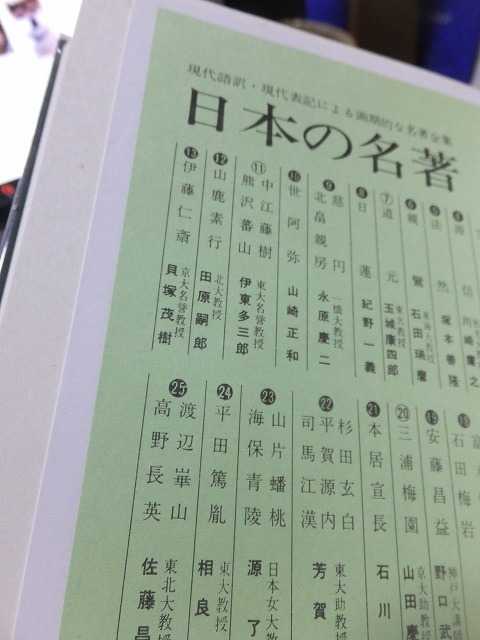 現代語訳・現代表記による画期的な名著全集
日本の名著
源信 川崎庸之
❺ 法然 塚本善隆
❻ 親鸞 東海大教授 石田瑞麿
⑦ 道元 東大教授 玉城康四郎
❽ 日蓮 紀野一義
❾ 慈円 北畠親房 一橋大教授 永原慶二
❿ 世阿弥 山崎正和
⑪ 中江藤樹 熊沢蕃山 東大名誉教授 伊東多三郎
⓬ 山鹿素行 北大教授 田原嗣郎
⓭ 伊藤仁斎 京大名誉教授 貝塚茂樹
石田梅岩
⓳ 安藤昌益 神戸大講師 野口武
⑳ 三浦梅園 京大助教 山田慶
㉑ 本居宣長 石川
㉒ 杉田玄白 平賀源内 司馬江漢 東大助教授 芳賀
㉓ 山片蟠桃 海保青陵 日本女大教 源了
㉔ 平田篤胤 東大教授 相良
㉕ 渡辺崋山 高野長英 東北大教授 佐藤昌